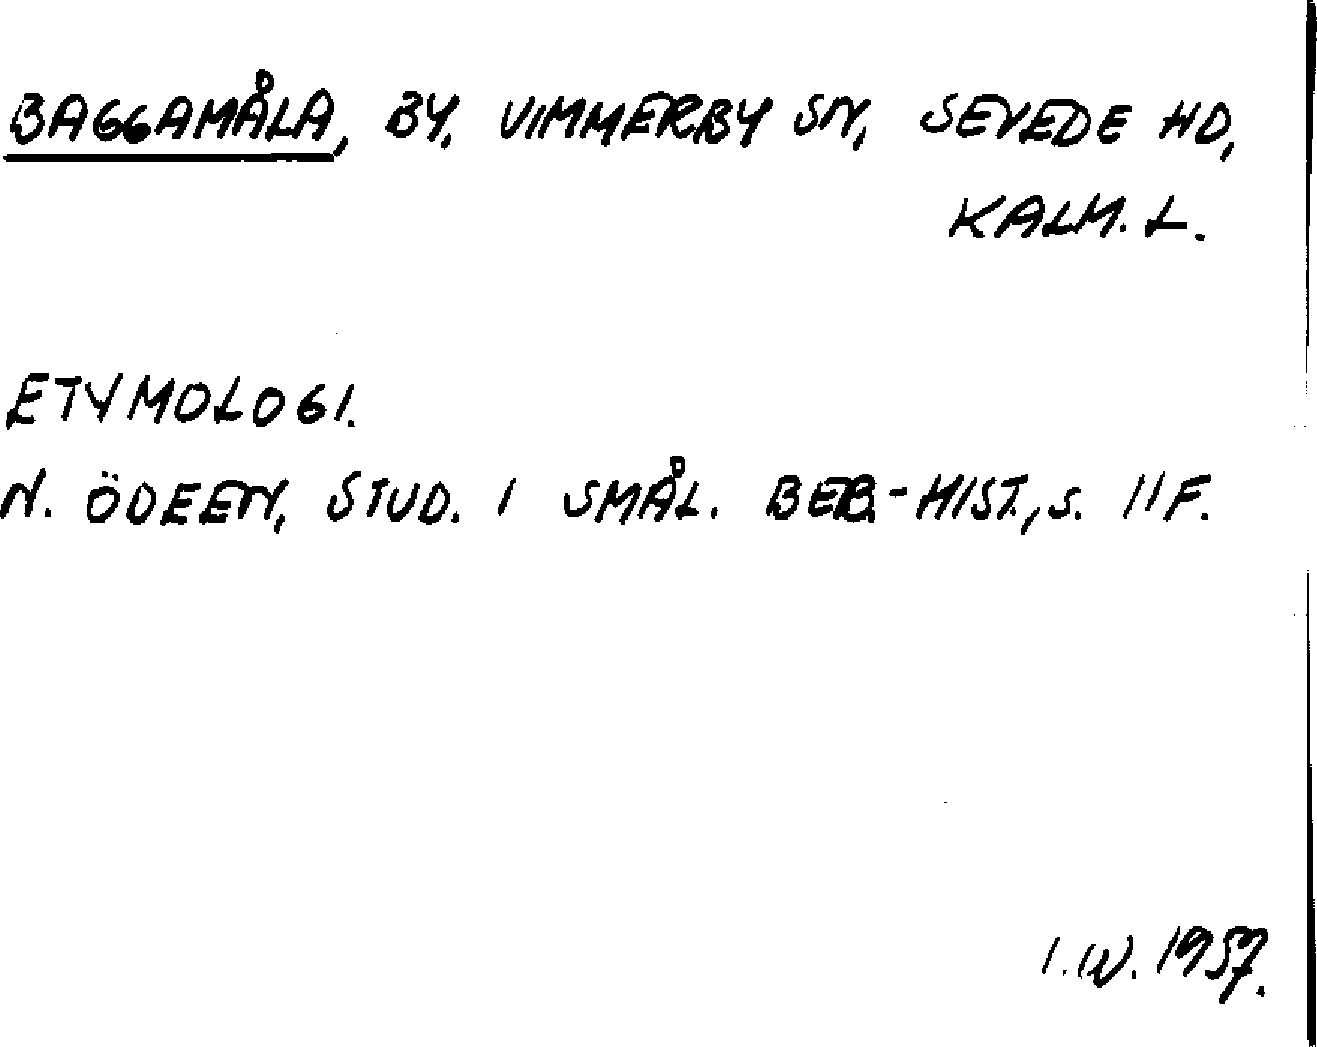 BAGGAMÅLA, BY, VIMMERBY SN, SEVEDE HD,
KALM. L.
ETYMOLOGI.
N. ÖDEEN, STUD. I SMÅL. BEB.-HIST., S. 11F.
I.W. 1957.